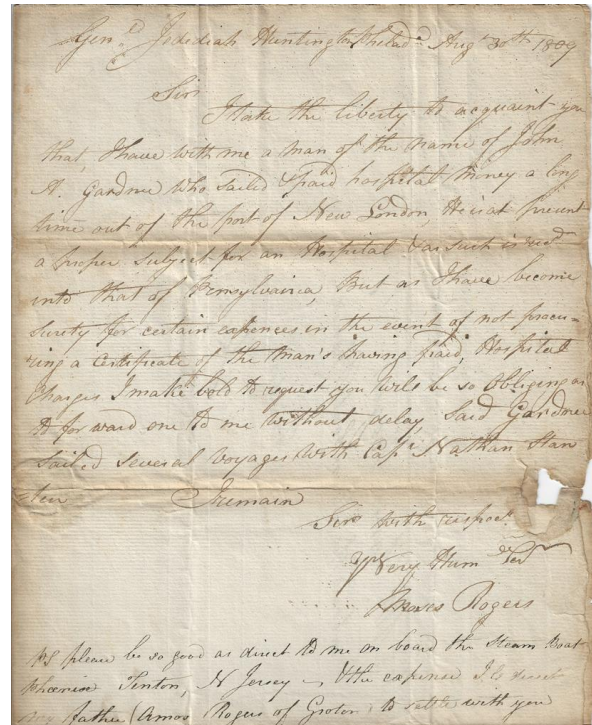 Gen.l Jedidiah Huntington Philad.a Aug.t 30th 1809
Sir
I take the liberty to acquaint you
that, I have with me a man of the name of John
A. Gardner who sailed & paid hospital money a long
time out of the port of New London, He is at present
a proper subject for an Hospital & as such is rec.d
into that of Pennsylvania, But as I have become
surety for certain expences in the event of not procu=
ring a certificate of the man's having paid, Hospital
Charges I make bold to request you will be so obliging as
to forward one to me without delay, said Gardner
sailed several voyages with Cap.t Nathan Stan
=ton I remain
Sir with respect
Y.r Very Hum Ser
Moses Rogers
PS please be so good as direct to me on board the Steam Boat
Phoenix Trenton, N Jersey — & the expence I'll direct
my father (Amos Rogers of Groton) to settle with you